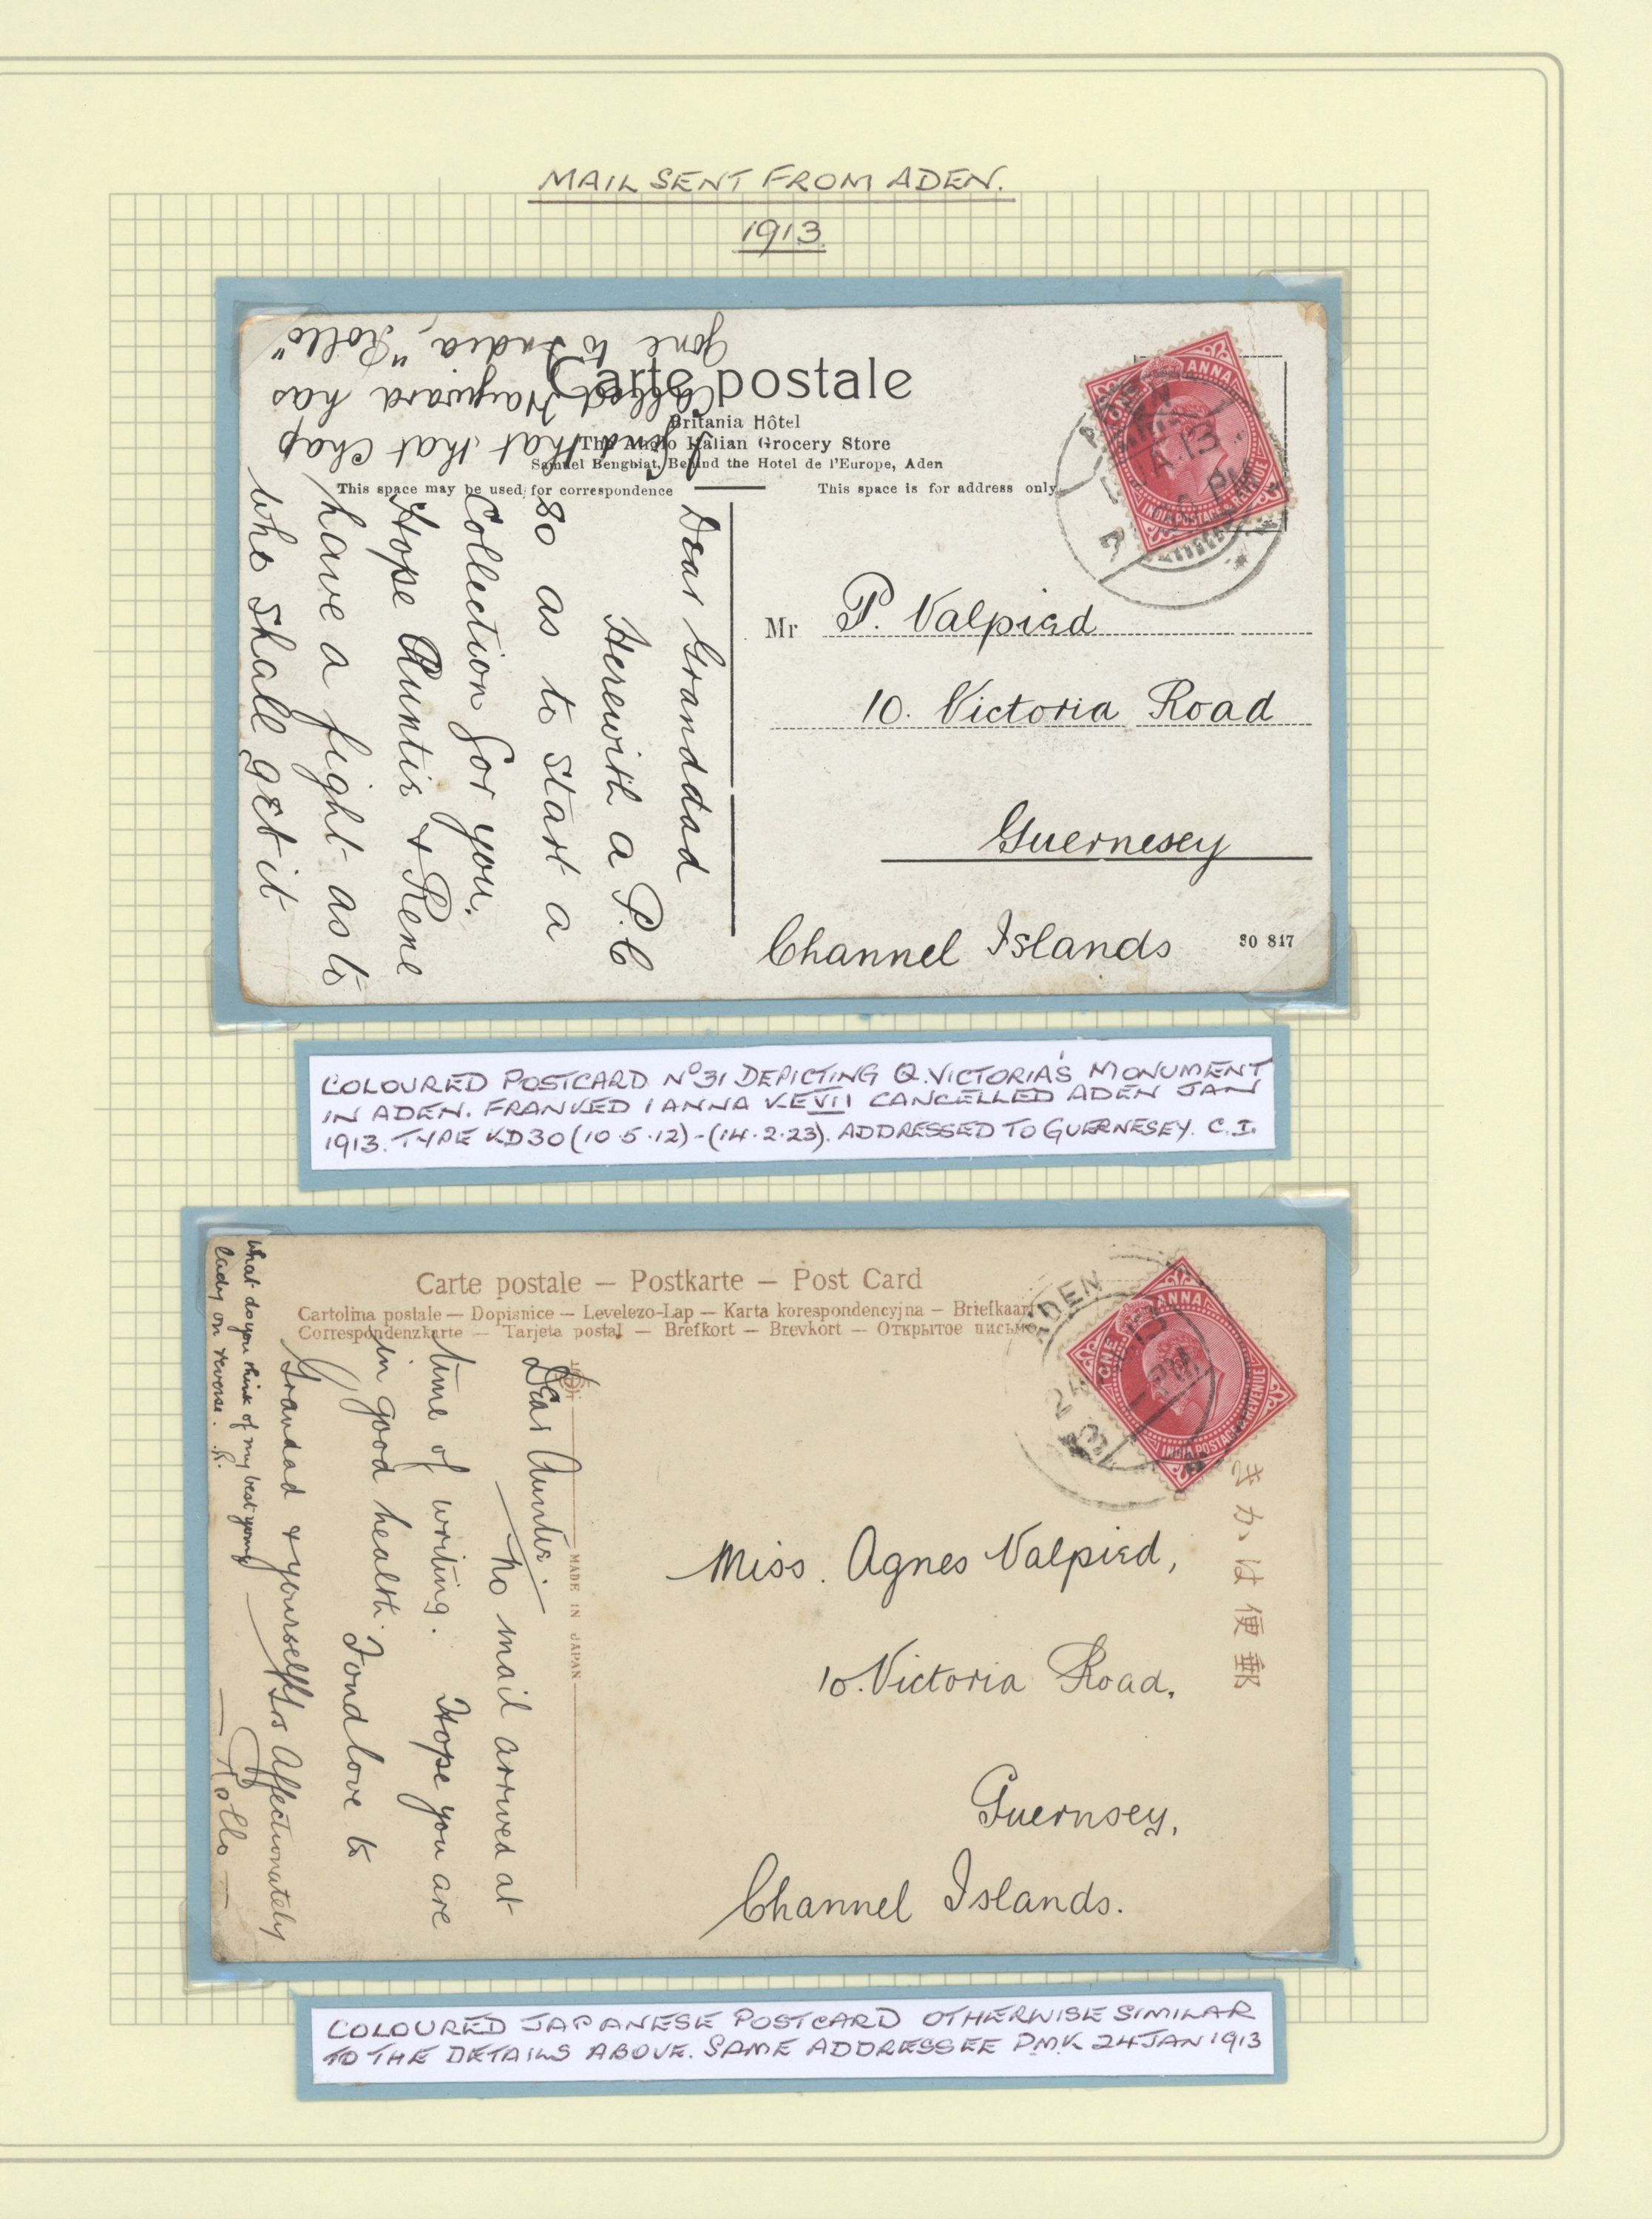 MAIL SENT FROM ADEN.
1913
Carte postale
Britania Hôtel
The Anglo Italian Grocery Store
Samuel Benghiat, Behind the Hotel de l'Europe, Aden
This space may be used for correspondence
This space is for address only
Dear Granddad
Herewith a P.C
so as to start a
Collection for you.
Hope Auntie & Rene
have a fight as to
who shall get it
that that chap
Called Hayward has
gone to India, "Rollo"
ONE ANNA
INDIA POSTAGE & REVENUE
A.13
PM
Mr P. Valpied
10. Victoria Road
Guernesey
Channel Islands
30 817
COLOURED POSTCARD Nº 31 DEPICTING Q.VICTORIA'S MONUMENT
IN ADEN. FRANKED 1 ANNA KEVII CANCELLED ADEN JAN
1913. TYPE KD30 (10.5.12)-(14.2.23). ADDRESSED TO GUERNESEY. C.I.
Carte postale — Postkarte — Post Card
Cartolina postale — Dopisnice — Levelezo-Lap — Karta korespondencyjna — Briefkaart
Correspondenzkarte — Tarjeta postal — Brefkort — Brevkort — Открытое письмо
Dear Auntie.
No mail arrived at
time of writing. Hope you are
in good health. Fond love to
Grandad & yourself
Yrs Affectionately
— Rollo —
What do you think of my best young
lady on reverse. R.
MADE IN JAPAN
ADEN
24
13
PM
ONE ANNA
INDIA POSTAGE & REVENUE
郵便はかき
Miss. Agnes Valpied,
10. Victoria Road,
Guernsey,
Channel Islands.
COLOURED JAPANESE POSTCARD OTHERWISE SIMILAR
TO THE DETAILS ABOVE. SAME ADDRESSEE PMK 24 JAN 1913